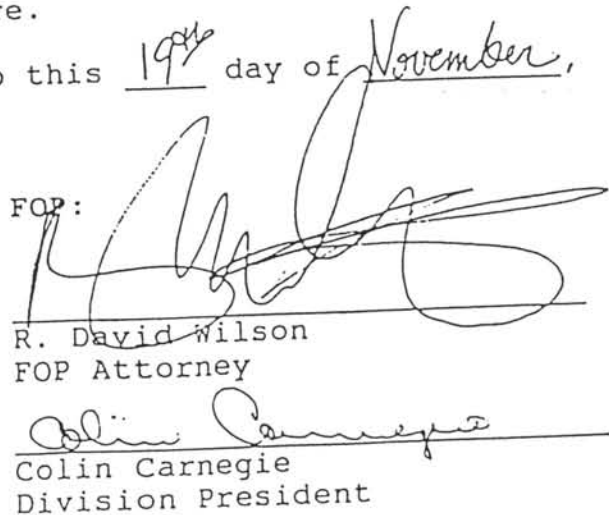 re.
o this 19th day of November,
FOP:
R. David Wilson
FOP Attorney
Colin Carnegie
Colin Carnegie
Division President